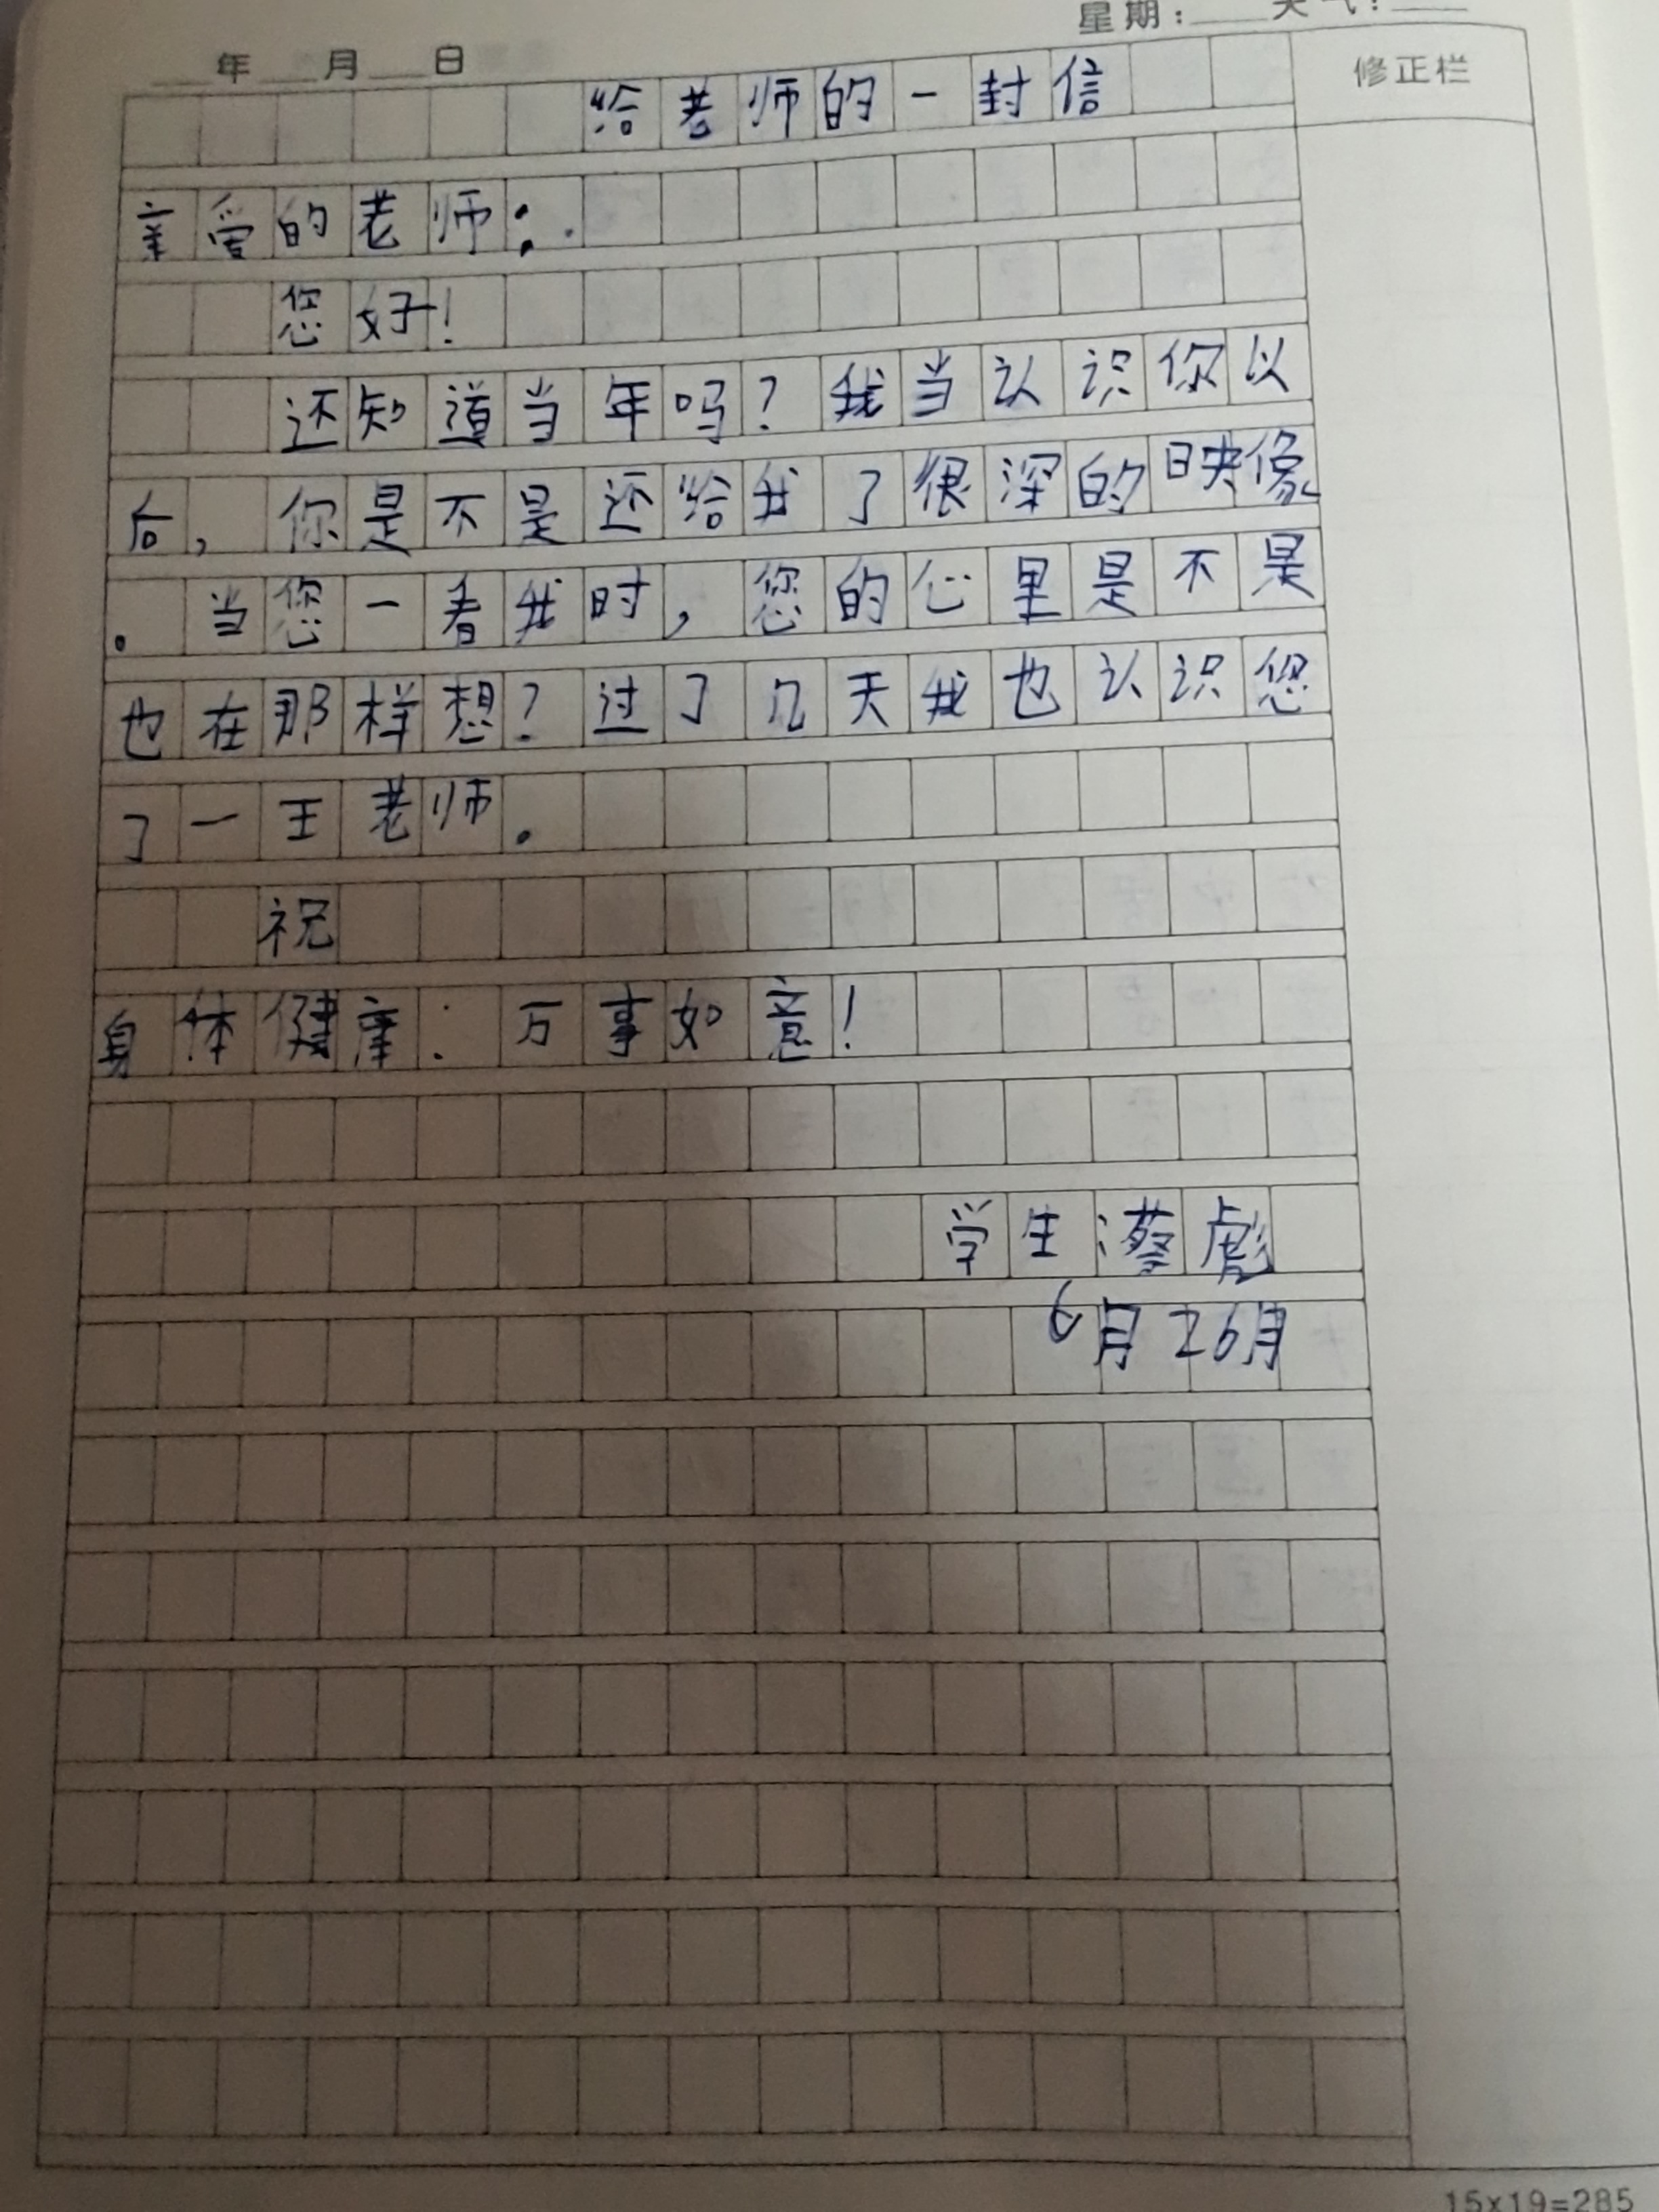 星期：____天气：____
____年____月____日
修正栏
给老师的一封信
亲爱的老师：
您好！
还知道当年吗？我当认识你以
后，你是不是还给我了很深的映像
。当您一看我时，您的心里是不是
也在那样想？过了几天我也认识您
了一王老师。
祝
身体健康：万事如意！
学生：蔡彪
6月26月
15×19=285